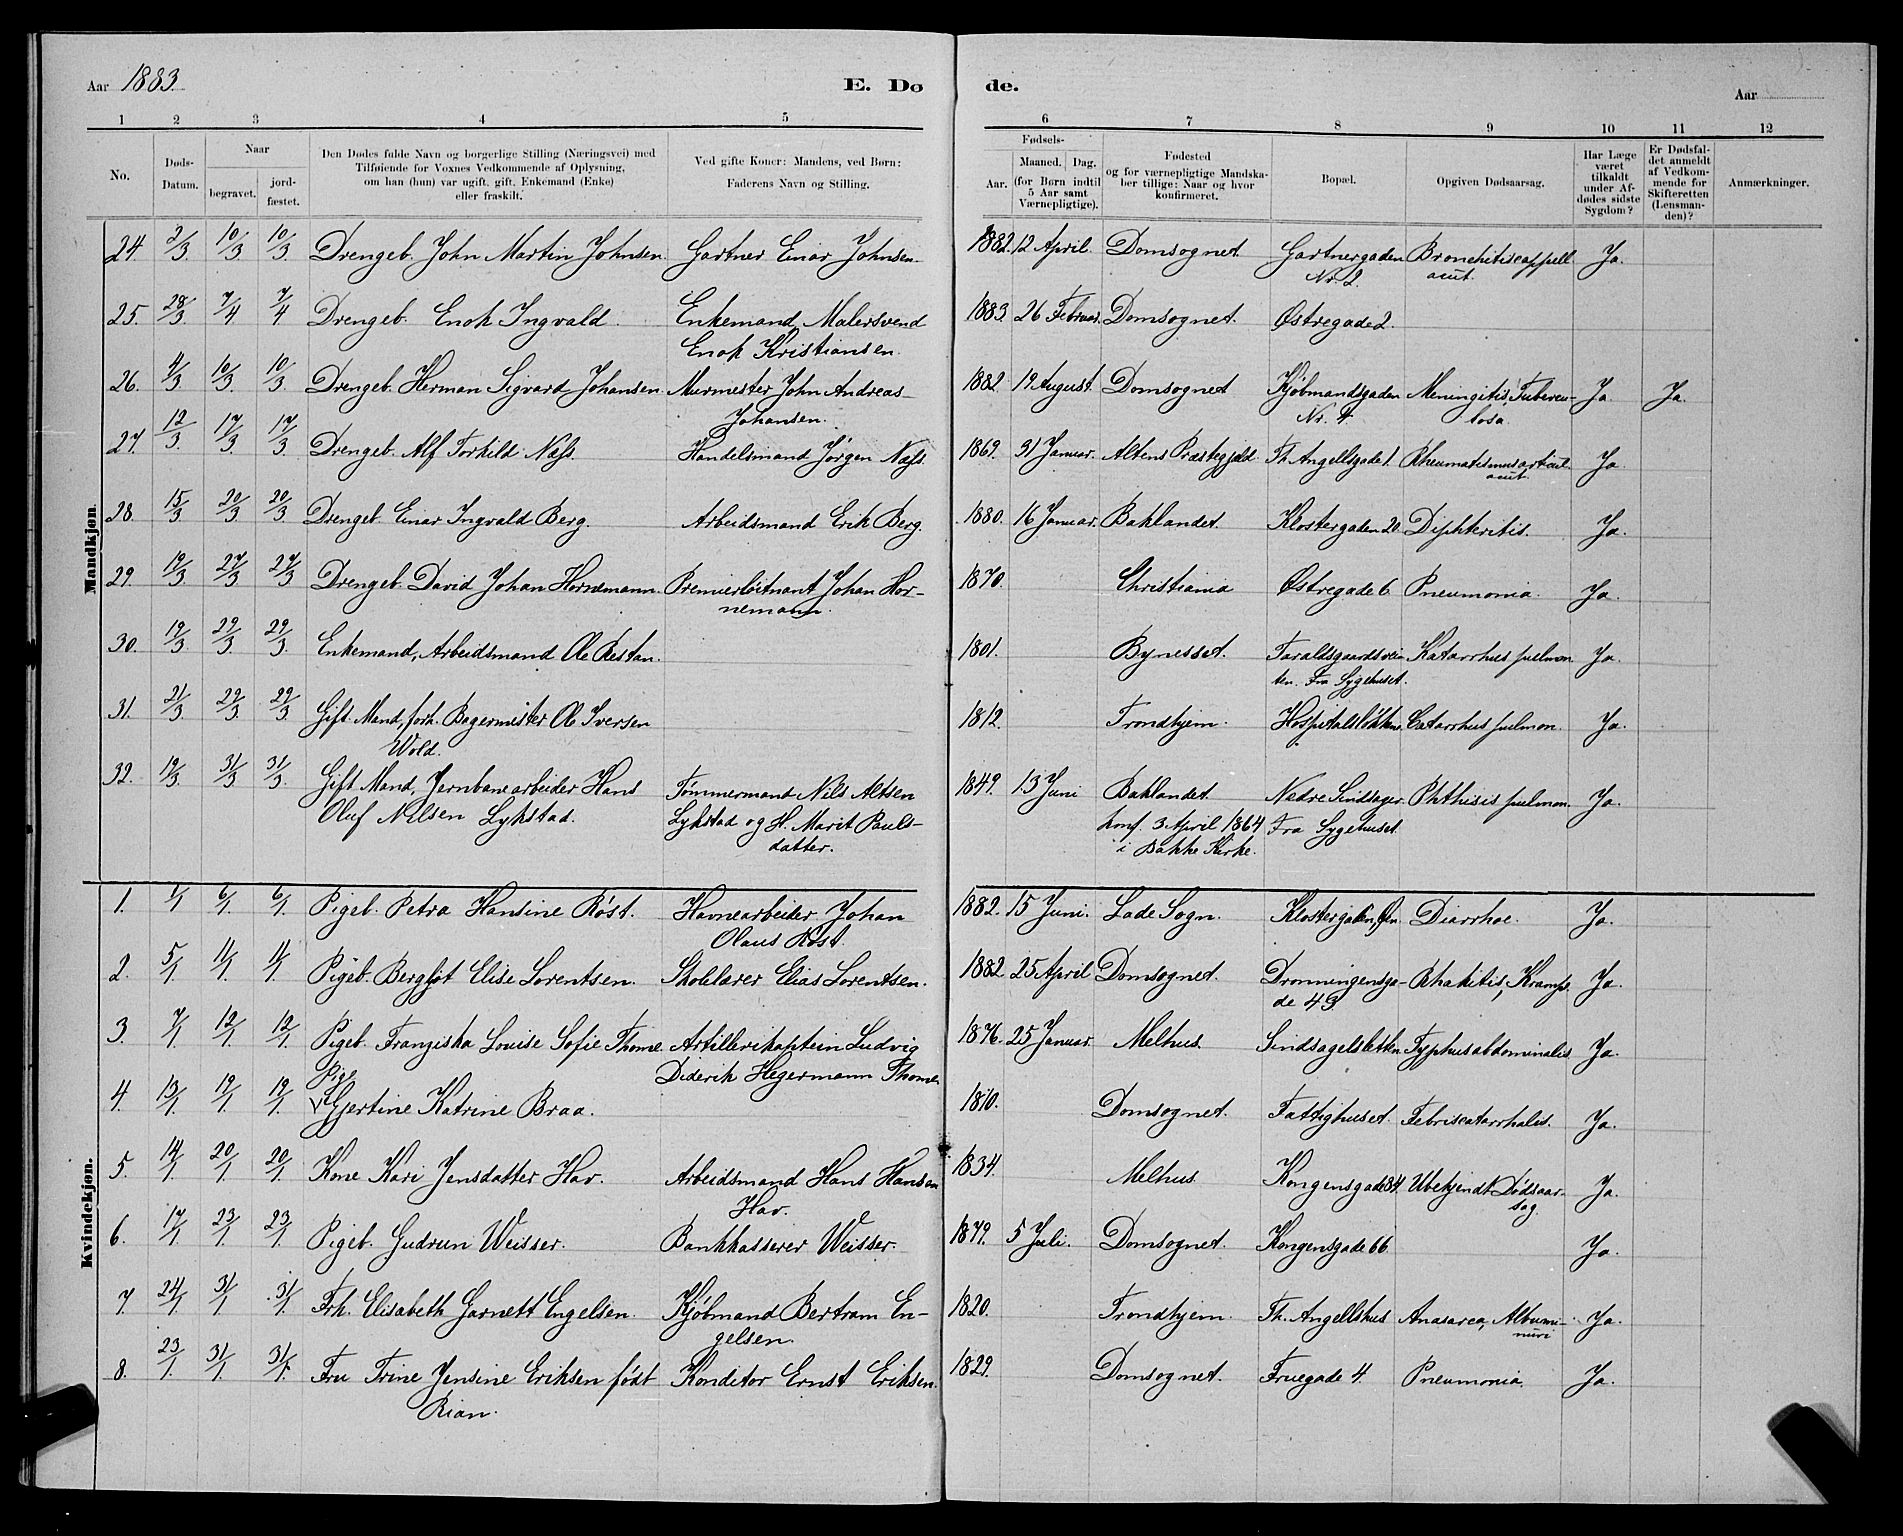 Aar 1883. E. Dø de. Aar
1 2 3 4 5 6 7 8 9 10 11 12
No. Døds-Datum. Naar begravet. jord-fæstet. Den Dødes fulde Navn og borgerlige Stilling (Næringsvei) med Tilføiende for Voxnes Vedkommende af Oplysning, om han (hun) var ugift, gift, Enkemand (Enke) eller fraskilt. Ved gifte Koner: Mandens, ved Børn: Faderens Navn og Stilling. Fødsels- Aar. Maaned. Dag. (for Børn indtil 5 Aar samt Værnepligtige). Fødested og for værnepligtige Mandskaber tillige: Naar og hvor konfirmeret. Bopæl. Opgiven Dødsaarsag. Har Læge været tilkaldt under Afdødes sidste Sygdom? Er Dødsfaldet anmeldt af Vedkommende for Skifteretten (Lensmanden)? Anmærkninger.
Mandkjøn.
24 2/3 10/3 10/3 Drengeb. John Martin Johnsen. Gartner Einar Johnsen. 1882. 12 April. Domsognet. Gartnergaden Bronchitiscappell. Ja.
Nr. 2. acut.
25. 28/3 7/4 7/4 Drengeb. Enok Ingvald. Enkemand, Malersvend 1883. 26 Februar. Domsognet. Østregade 2.
Enok Kristiansen.
26. 4/3 10/3 10/3 Drengeb. Herman Sigvard Johansen. Murmester John Andreas 1882. 19 August. Domsognet Kjøbmandsgaden Meningitis Tubercu- Ja. Ja.
Johansen. Nr. 4. losa
27. 12/3 17/3 17/3 Drengeb. Alf Torkild Næss. Handelsmand Jørgen Næss. 1869. 31 Januar. Altens Præstegjæld. Th. Angellsgade 1. Rheumatismus articul. Ja.
acut.
28. 15/3 20/3 20/3 Drengeb. Einar Ingvald Berg. Arbeidsmand Erik Berg. 1880. 16 Januar. Baklandet. Klostergaden 20. Diphteritis. Ja.
29. 19/3 27/3 27/3 Drengeb. David Johan Hornemann. Premierløitnant Johan Hor- 1870. Christiania Østregade 6 Pneumonia. Ja.
nemann.
30. 19/3 29/3 29/3 Enkemand, Arbeidsmand Ole Restan. 1801. Bynesset. Taraldsgaardsvei Katarrhus pulmon. Ja.
ten. Fra Sygehuset.
31. 21/3 29/3 29/3 Gift Mand, forh. Bagermester Ole Iversen 1812. Trondhjem. Hospitalsløkken. Catarrhus pulmon. Ja.
Wold.
32. 19/3 31/3 31/3 Gift Mand, Jernbanearbeider Hans Tømmermand Nils Altsen 1849. 13 Juni Baklandet. Nedre Sindsager. Phthisis pulmon. Ja.
Oluf Nilsen Lykstad. Lykstad og H. Marit Pauls- konf. 3 April 1864 Fra Sygehuset.
datter. i Bakke Kirke.
Kvindekjøn.
1. 1/1 6/1 6/1 Pigeb. Petra Hansine Røst. Havnearbeider Johan 1882. 15 Juni. Lade Sogn. Diarrhoe. Ja.
Olaus Røst.
2. 5/1 11/1 11/1 Pigeb. Bergljot Elise Lorentsen. Skolelærer Elias Lorentsen. 1882 25 April Domsognet. Dronningensga- Rhakitis, Krampe Ja.
de 43
3. 7/1 12/1 12/1 Pigeb. Franziska Louise Sofie Thome Artillerikaptein Ludvig 1876. 25 Januar. Melhus. Sindsagelsletten Typhus abdominalis Ja.
Diderik Hegermann Thome.
4. 13/1 19/1 19/1 Pige Gjertine Katrine Braa. 1810. Domsognet. Fattighuset. Febriscatarrhalis. Ja.
5 14/1 20/1 20/1 Kone Kari Jensdatter Hav. Arbeidsmand Hans Hansen 1834. Melhus Kongensgade 84. Ubekjendt Dødsaar- Ja.
Hav. sag.
6. 17/1 23/1 23/1 Pigeb. Gudrun Weisser. Bankkasserer Weisser. 1879. 5 Juli. Domsognet. Kongensgade 66 Ja.
7 24/1 31/1 31/1 Frk. Elisabeth Garnett Engelsen. Kjøbmand Bertram En- 1820. Trondhjem. Th. Angellshus Anasarca, Albumi- Ja.
gelsen. nuri
8. 23/1 31/1 31/1 Fru Trine Jensine Eriksen født Konditor Ernst Eriksen. 1829. Domsognet. Fruegade 4. Pneumonia. Ja.
Rian.